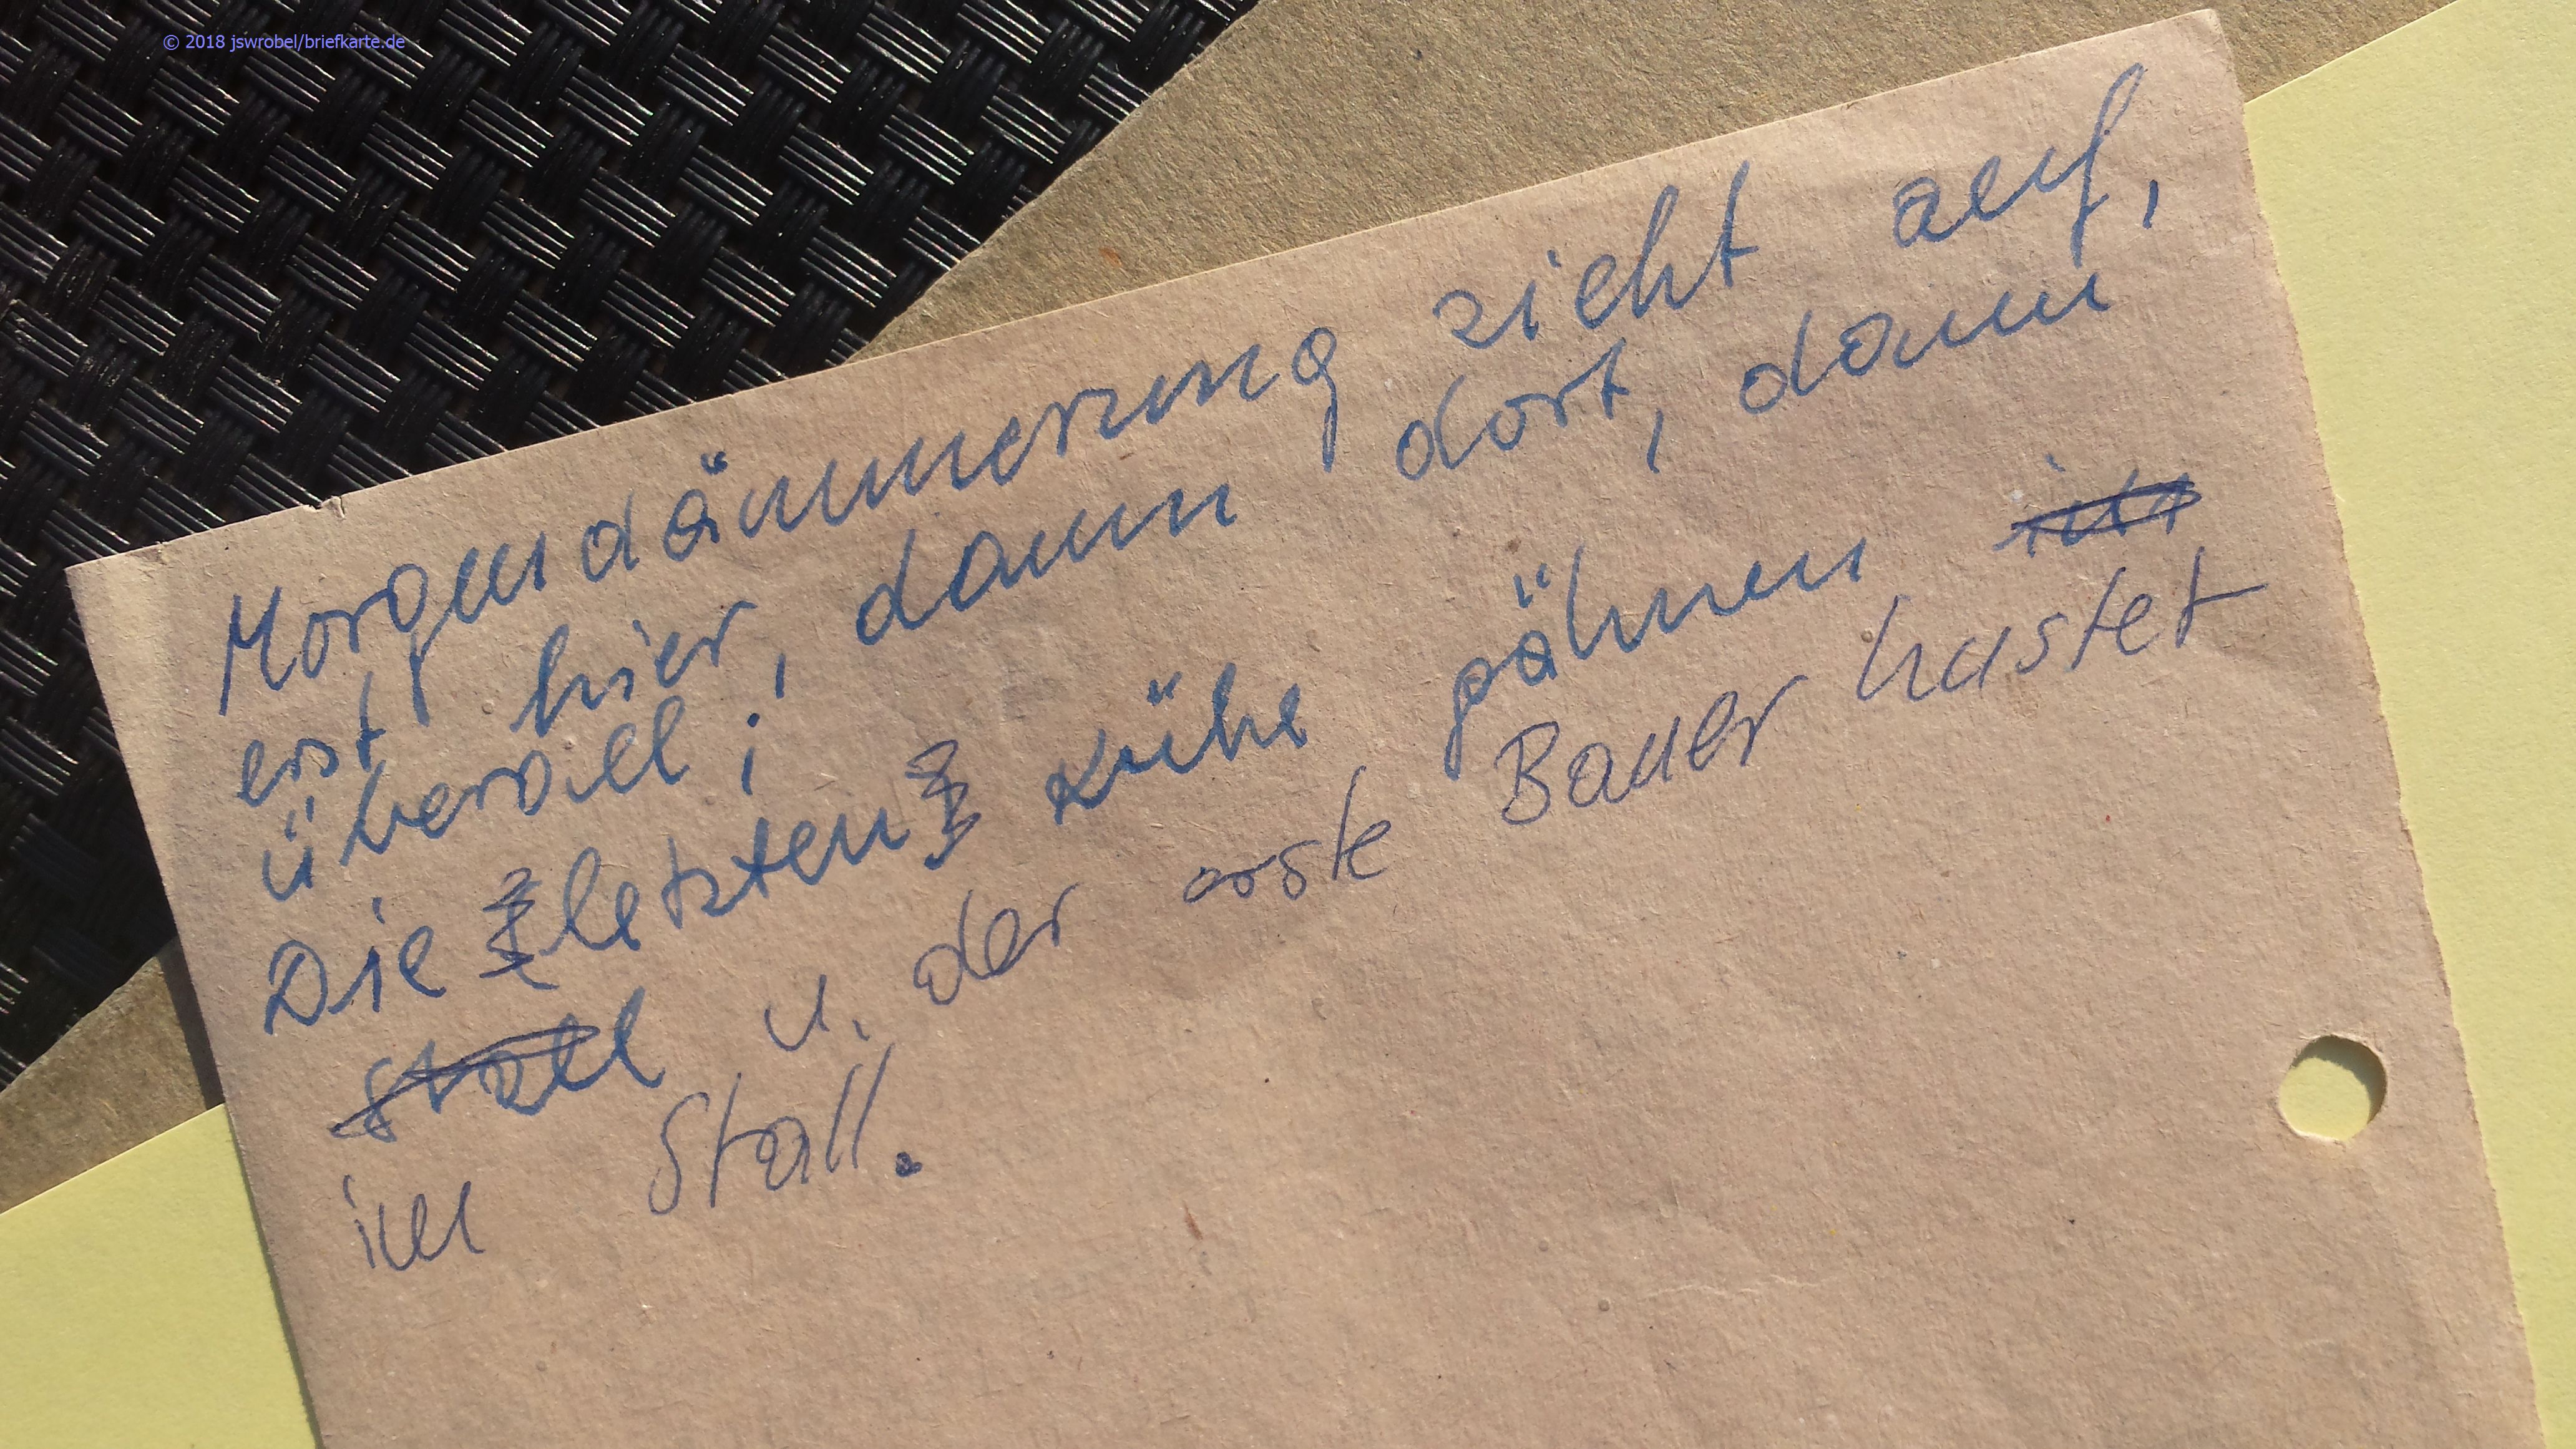 © 2018 jswrobel/briefkarte.de
Morgendämmerung zieht auf,
erst hier, dann dort, dann
überall;
Die letzten Kühe gähnen im
Stall u. der erste Bauer hustet
im Stall.